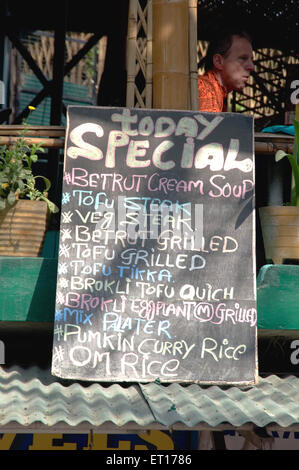 today
Special
*BETRUT CREAM SOUP
*TOFU STEAK
*VEG STEAK
*BETRUT GRILLED
*TOFU GRILLED
*TOFU TIKKA.
*BROKLI TOFU QUICH
*BROKLI EGGPLANT(M)GRILLED
*MIX PLATER
*PUMKIN CURRY RICE
*OM RICE
alamy
Image ID: E117186
www.alamy.com